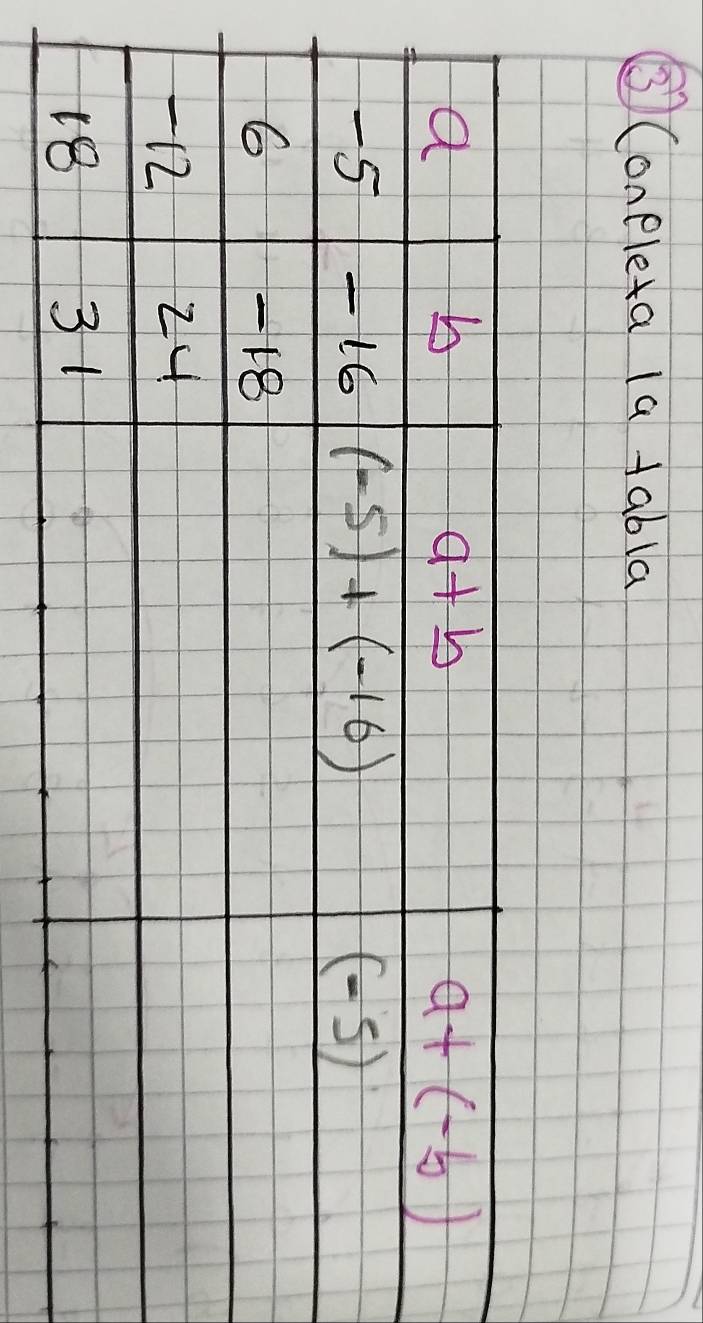 ③ Conpleta la tabla
a b a+b a+(-b)
-5 -16 (-5)+(-16) (-5)
6 -18
-12 24
18 31